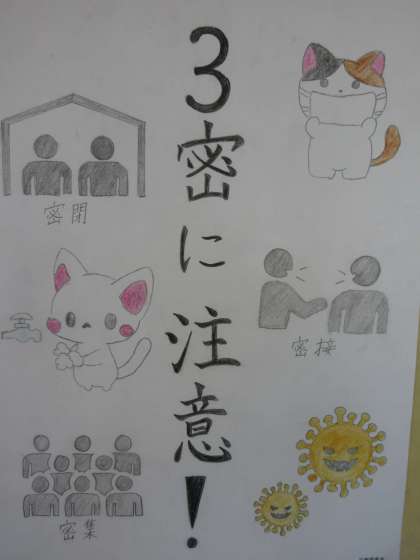 3密に注意!
密閉
密接
密集